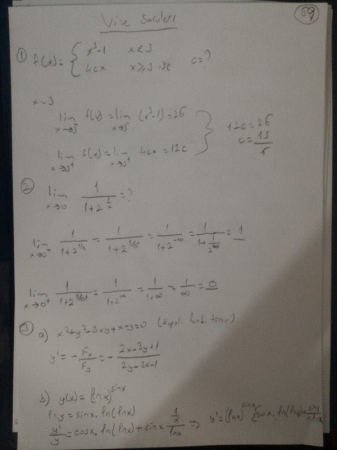 Vize Soruları
59
① f(x) = { x³-1 x<3
4cx x≥3 ise c=?
x=3
lim x→3⁻ f(x) = lim x→3⁻ (x³-1) = 26
lim x→3⁺ f(x) = lim x→3⁺ 4cx = 12c
12c = 26
c = 13/6
② lim x→0 1/(1+2^(1/x)) = ?
lim x→0⁻ 1/(1+2^(1/x)) = 1/(1+2^(1/0⁻)) = 1/(1+2^(-∞)) = 1/(1+1/2^∞) = 1
lim x→0⁺ 1/(1+2^(1/0⁺)) = 1/(1+2^∞) = 1/(1+∞) = 1/∞ = 0
③ a) x²+y²-3xy+x-y=0
y' = -Fx/Fy = -(2x-3y+1)/(2y-3x-1)
b) y(x) = (lnx)^sinx
lny = sinx. ln(lnx)
y'/y = cosx. ln(lnx) + sinx (1/x)/lnx ⇒ y' = (lnx)^sinx